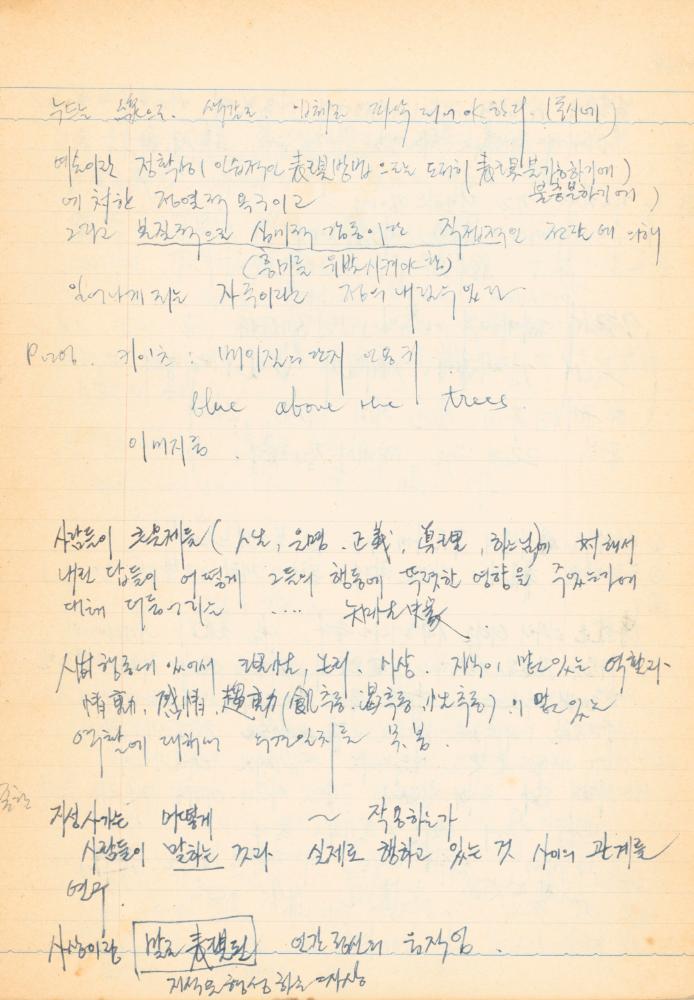 누드는 線으로. 색감으로. 입체로 파악되어야 한다. (로시네)
예술이란 정확성이 인습적인 表現방법으로는 도저히 (表現불가능하기에)
불충분하기에)
에 처한 정열적 욕구이고
그리고 본질적으로 심미적 감동이란 직접적인 전달에 의해
(흥미를 유발시켜야 함)
일어나게 되는 자극이라고 정의 내릴 수 있다
키이츠 : 페이지의 단지 인용귀
blue above the trees
이미지즘.
사람들이 大문제들 (人生, 운명, 正義, 眞理, 하느님)에 対해서
내린 답들이 어떻게 그들의 행동에 뚜렷한 영향을 주었는가에
대해 더듬거리는 ....
人間행동에 있어서 理性, 논리, 사상, 지식이 맡고 있는 역할과
情動, 感情, 趨動(飢추동, 渴추동, 性추동)이 맡고 있는
역할에 대해서 의견일치를 못 봄.
지성사가는 어떻게 ~ 작용하는가
사람들이 말하는 것과 실제로 행하고 있는 것 사이의 관계를
연구.
사상이란 말로 表現된 인간정신의 움직임.
지식으로 형성하는 사상